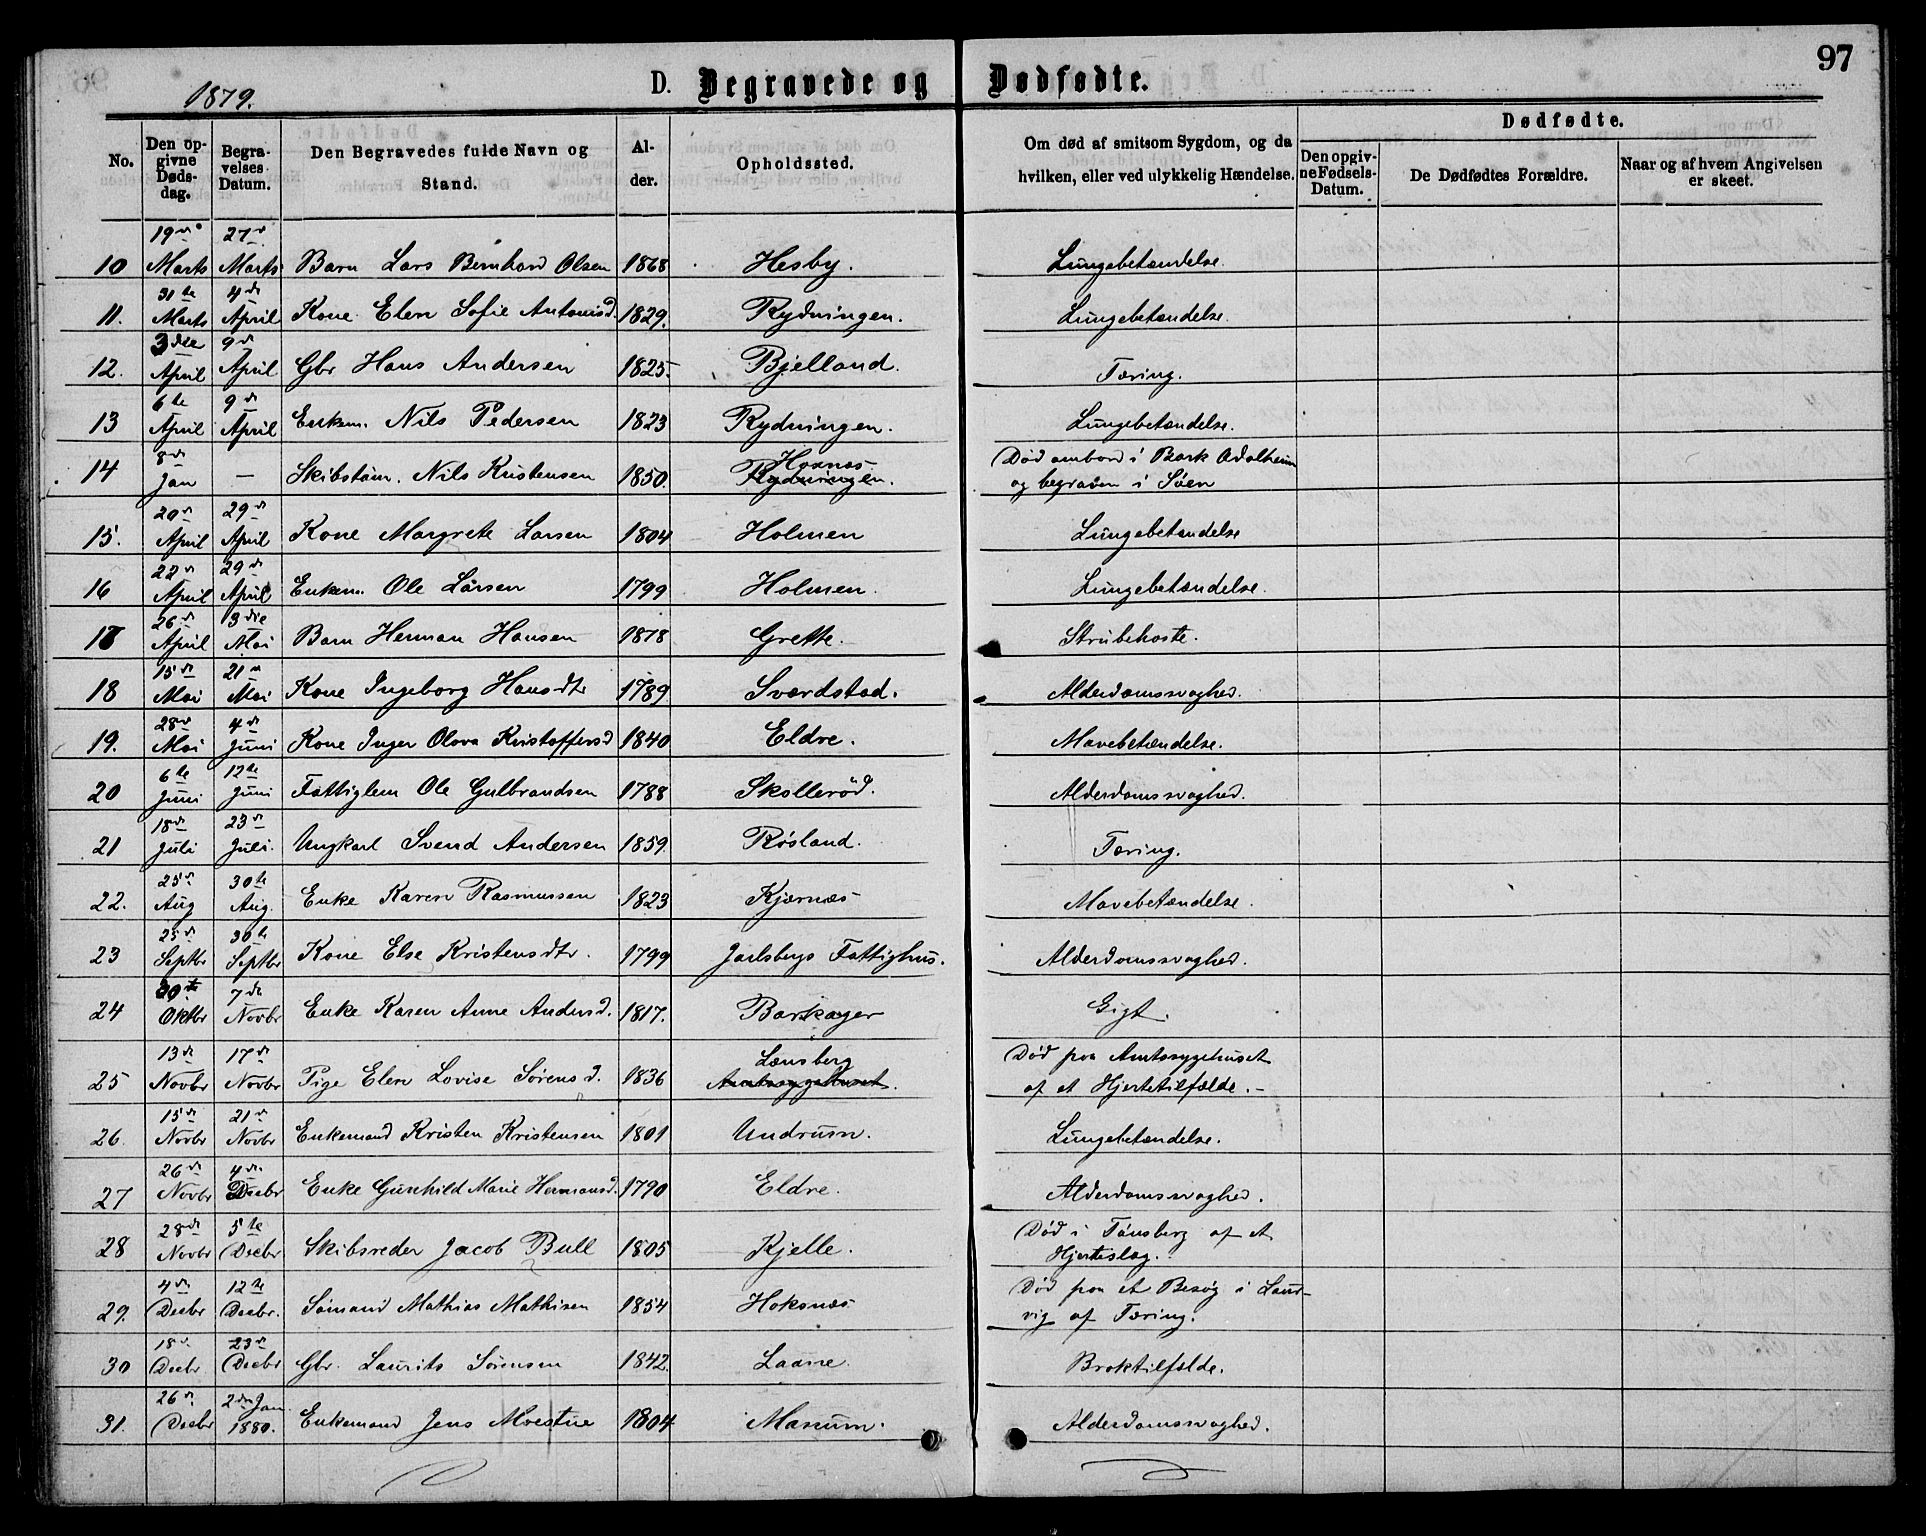 97
1879.
D. Begravede og Dødfødte.
No. Den opgivne Dødsdag. Begravelses Datum. Den Begravedes fulde Navn og Stand. Alder. Opholdssted. Om død af smitsom Sygdom, og da hvilken, eller ved ulykkelig Hændelse. Dødfødte. Den opgivne Fødsels-Datum. De Dødfødtes Forældre. Naar og af hvem Angivelsen er skeet.
10 19de Marts 27de Marts Barn Lars Bernhard Olsen 1868 Hesby. Lungebetændelse.
11. 31te Marts 4de April Kone Elen Sofie Antonisd. 1829. Rydningen. Lungebetændelse.
12. 3die April 9de April Gbr Hans Andersen 1825. Bjelland. Tæring.
13 6te April 9de April Enkem. Nils Pedersen 1823 Rydningen. Lungebetændelse.
14 8de Jan — Skibstøm. Nils Kristensen 1850. Hoxnæs Rydningen. Død ombord i Bark Adalheim og begraven i Søen
15. 20de April 29de April Kone Margrete Larsen 1804 Holmen Lungebetændelse
16 22de April 29de April Enkem. Ole Larsen 1799 Holmen. Lungebetændelse.
17 26de April 3die Mai Barn Herman Hansen 1878 Grette. Strubehoste.
18 15de Mai 21de Mai Kone Ingeborg Hansdtr 1789 Sværdstad. Alderdomssvaghed.
19. 28de Mai 4de Juni Kone Inger Olava Kristoffersd 1840 Eldre. Mavebetændelse.
20 6te Juni 12te Juni Fattiglem Ole Gulbrandsen 1788 Skollerød. Alderdomssvaghed.
21 18de Juli 23de Juli. Ungkarl Svend Andersen 1859. Røsland. Tæring.
22. 25de Aug 30te Aug. Enke Karen Rasmussen 1823 Kjærnæs Mavebetændelse.
23 25de Septbr 30te Septbr Kone Else Kristensdtr. 1799 Jarlsbergs Fattighus. Alderdomssvaghed.
24 Oktbr 7de Novbr Enke Karen Anne Andersd. 1817. Barkager Gigt.
25 13de Novbr 17de Novbr Pige Elen Lovise Sørensd. 1836 Lænsberg Amtssygehuset. Død paa Amtssygehuset af et Hjertetilfælde. –
26. 15de Novbr 21de Novbr Enkemand Kristen Kristensen 1801 Undrum. Lungebetændelse.
27 26de Novbr 4de Decbr Enke Gunhild Marie Hermansd. 1790 Eldre. Alderdomssvaghed.
28 28de Novbr 5te Decbr Skibsreder Jacob Bull 1805 Kjelle. Død i Tønsberg af et Hjerteslag.
29. 4de Decbr 12te Decbr. Sømand Mathias Mathisen 1854 Hoksnæs Død paa et Besøg i Laurvig af Tæring.
30 18de Decbr 23de Decbr Gbr. Laurits Sørensen 1842. Laane. Broktilfælde.
31. 26de Decbr 2den Jan 1880. Enkemand Jens Moestue 1804 Manum. Alderdomssvaghed.